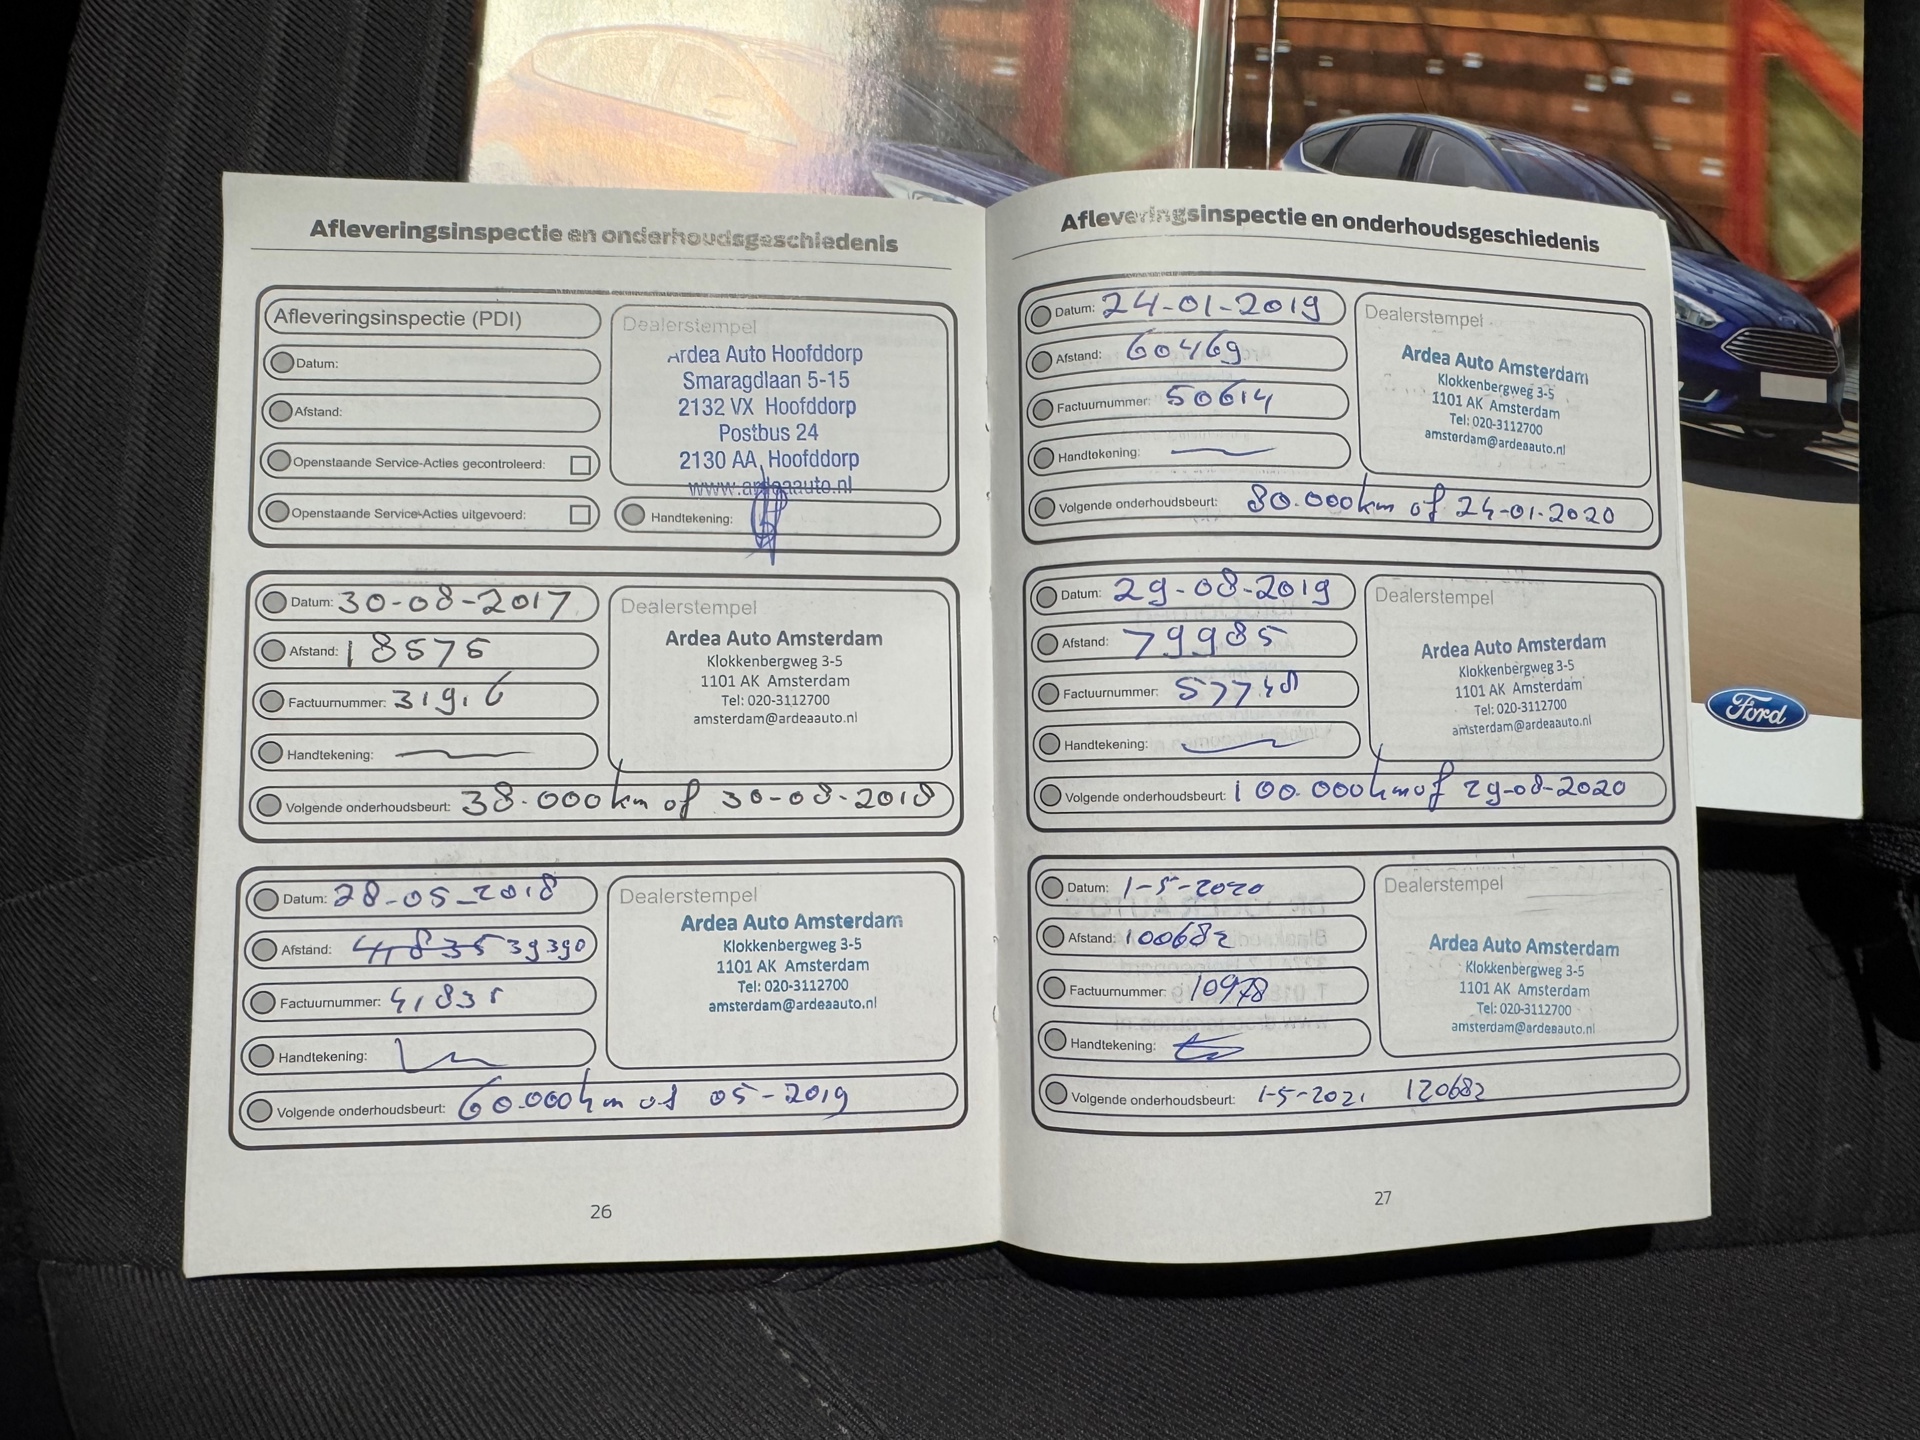 Afleveringsinspectie en onderhoudsgeschiedenis
Afleveringsinspectie (PDI)
Datum:
Afstand:
Openstaande Service-Acties gecontroleerd:
Openstaande Service-Acties uitgevoerd:
Dealerstempel
Ardea Auto Hoofddorp
Smaragdlaan 5-15
2132 VX Hoofddorp
Postbus 24
2130 AA Hoofddorp
www.ardeaauto.nl
Handtekening:
Datum: 30-08-2017
Afstand: 18575
Factuurnummer: 319.6
Handtekening:
Dealerstempel
Ardea Auto Amsterdam
Klokkenbergweg 3-5
1101 AK Amsterdam
Tel: 020-3112700
amsterdam@ardeaauto.nl
Volgende onderhoudsbeurt: 38.000 km of 30-08-2018
Datum: 28-05-2018
Afstand: 41835 39390
Factuurnummer: 41835
Handtekening:
Dealerstempel
Ardea Auto Amsterdam
Klokkenbergweg 3-5
1101 AK Amsterdam
Tel: 020-3112700
amsterdam@ardeaauto.nl
Volgende onderhoudsbeurt: 60.000 km of 05-2019
26
Afleveringsinspectie en onderhoudsgeschiedenis
Datum: 24-01-2019
Afstand: 60469
Factuurnummer: 50614
Handtekening:
Dealerstempel
Ardea Auto Amsterdam
Klokkenbergweg 3-5
1101 AK Amsterdam
Tel: 020-3112700
amsterdam@ardeaauto.nl
Volgende onderhoudsbeurt: 80.000 km of 24-01-2020
Datum: 29-08-2019
Afstand: 79985
Factuurnummer:
Handtekening:
Dealerstempel
Ardea Auto Amsterdam
Klokkenbergweg 3-5
1101 AK Amsterdam
Tel: 020-3112700
amsterdam@ardeaauto.nl
Volgende onderhoudsbeurt: 100.000 km of 29-08-2020
Datum: 1-5-2020
Afstand: 100682
Factuurnummer: 10978
Handtekening:
Dealerstempel
Ardea Auto Amsterdam
Klokkenbergweg 3-5
1101 AK Amsterdam
Tel: 020-3112700
amsterdam@ardeaauto.nl
Volgende onderhoudsbeurt: 1-5-2021 120682
27
Ford